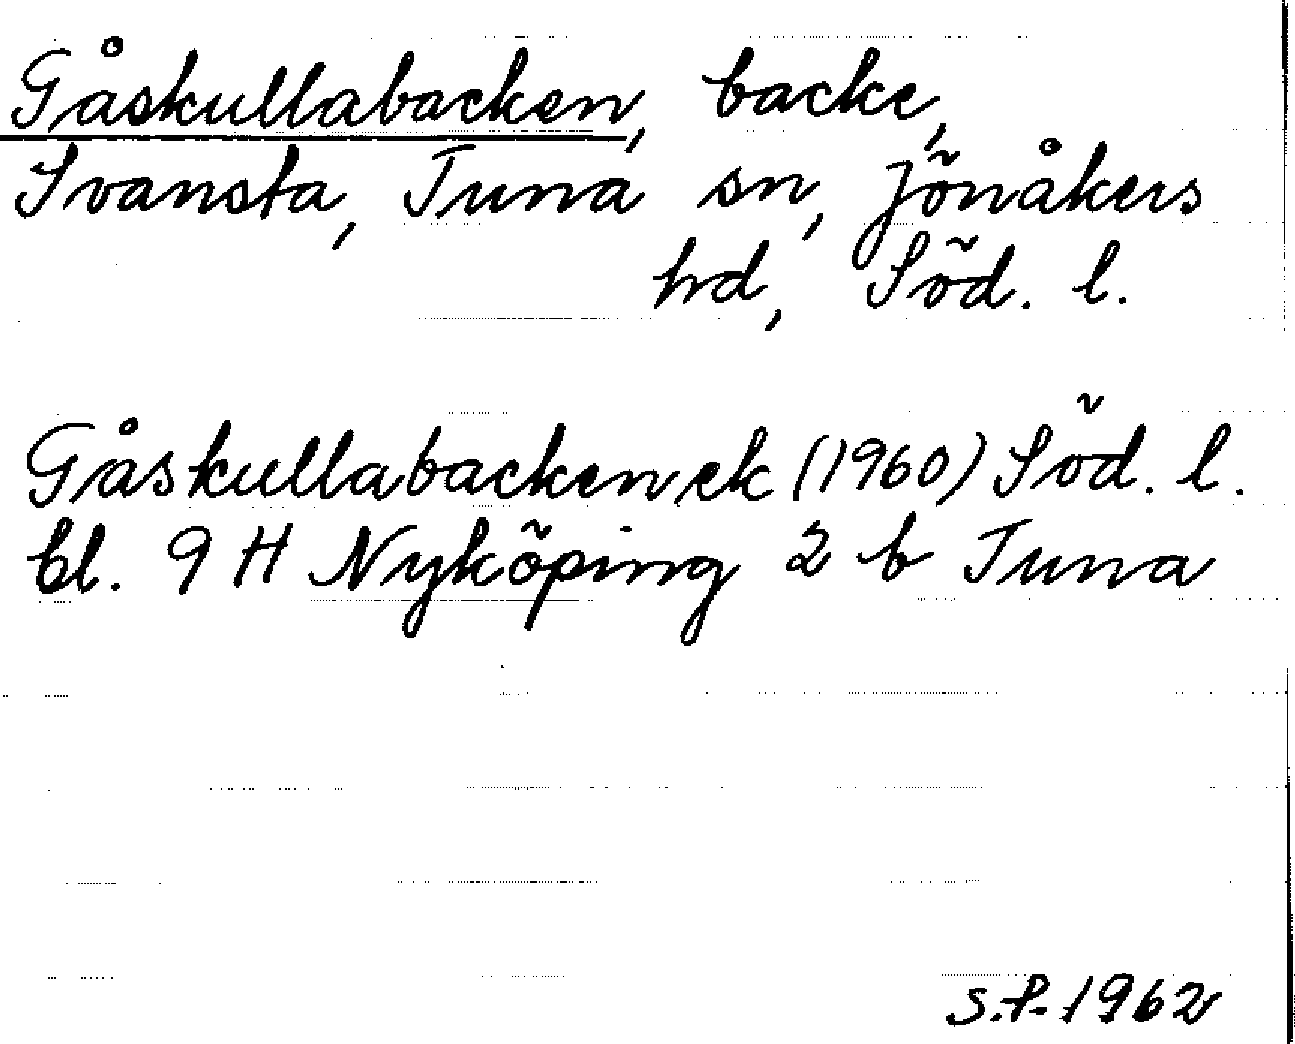 Gåskullabacken, backe,
Svansta, Tuna sn, Jönåkers
hd, Söd. l.
Gåskullabacken ek (1960) Söd. l.
bl. 9 H Nyköping 2 b Tuna
S.P. 1962